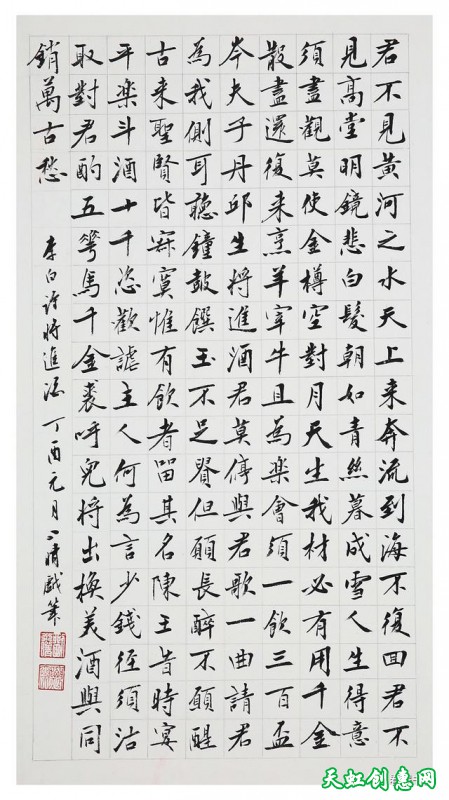 君不見黃河之水天上来奔流到海不復回君不
見高堂明鏡悲白髮朝如青絲暮成雪人生得意
須盡觀莫使金樽空對月天生我材必有用千金
散盡還復来烹羊宰牛且為楽會須一飲三百盃
岑夫子丹邱生將進酒君莫停與君歌一曲請君
為我側耳聽鐘鼓饌玉不足貴但願長醉不願醒
古来聖賢皆寂寞惟有飲者留其名陳王昔時宴
平楽斗酒十千恣歡謔主人何為言少錢徑須沽
取對君酌五花馬千金裘呼兒將出換美酒與同
銷萬古愁
李白詩將進酒 丁酉元月 晴戲筆
天虹创意网